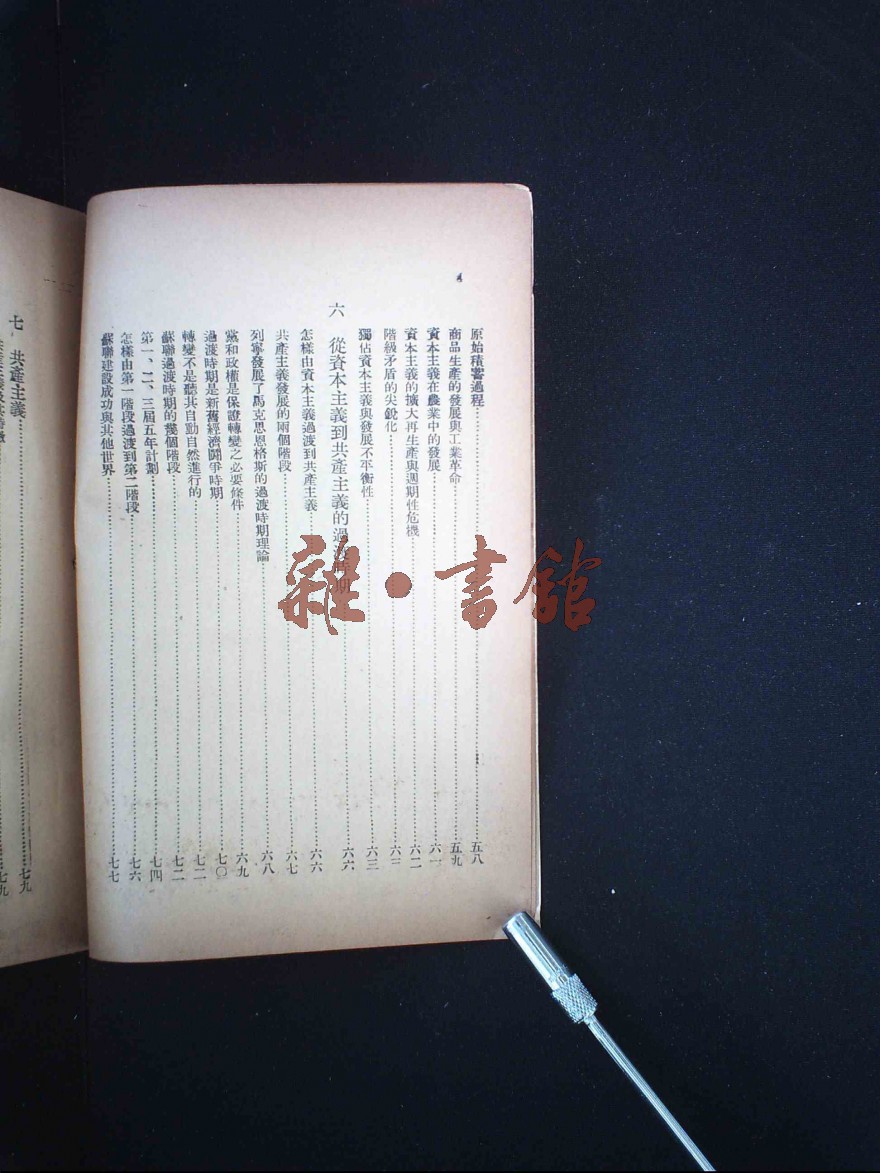 4
原始積蓄過程……五八
商品生產的發展與工業革命……五九
資本主義在農業中的發展……六一
資本主義的擴大再生產與週期性危機……六二
階級矛盾的尖銳化……六三
獨佔資本主義與發展不平衡性……六三
六 從資本主義到共產主義的過渡時期……六六
怎樣由資本主義過渡到共產主義……六六
共產主義發展的兩個階段……六七
列寧發展了馬克思恩格斯的過渡時期理論……六八
黨和政權是保證轉變之必要條件……六九
過渡時期是新舊經濟鬪爭時期……七〇
轉變不是聽其自動自然進行的……七二
蘇聯過渡時期的幾個階段……七二
第一、二、三屆五年計劃……七四
怎樣由第一階段過渡到第二階段……七六
蘇聯建設成功與其他世界……七七
七 共產主義……七九
雜·書館